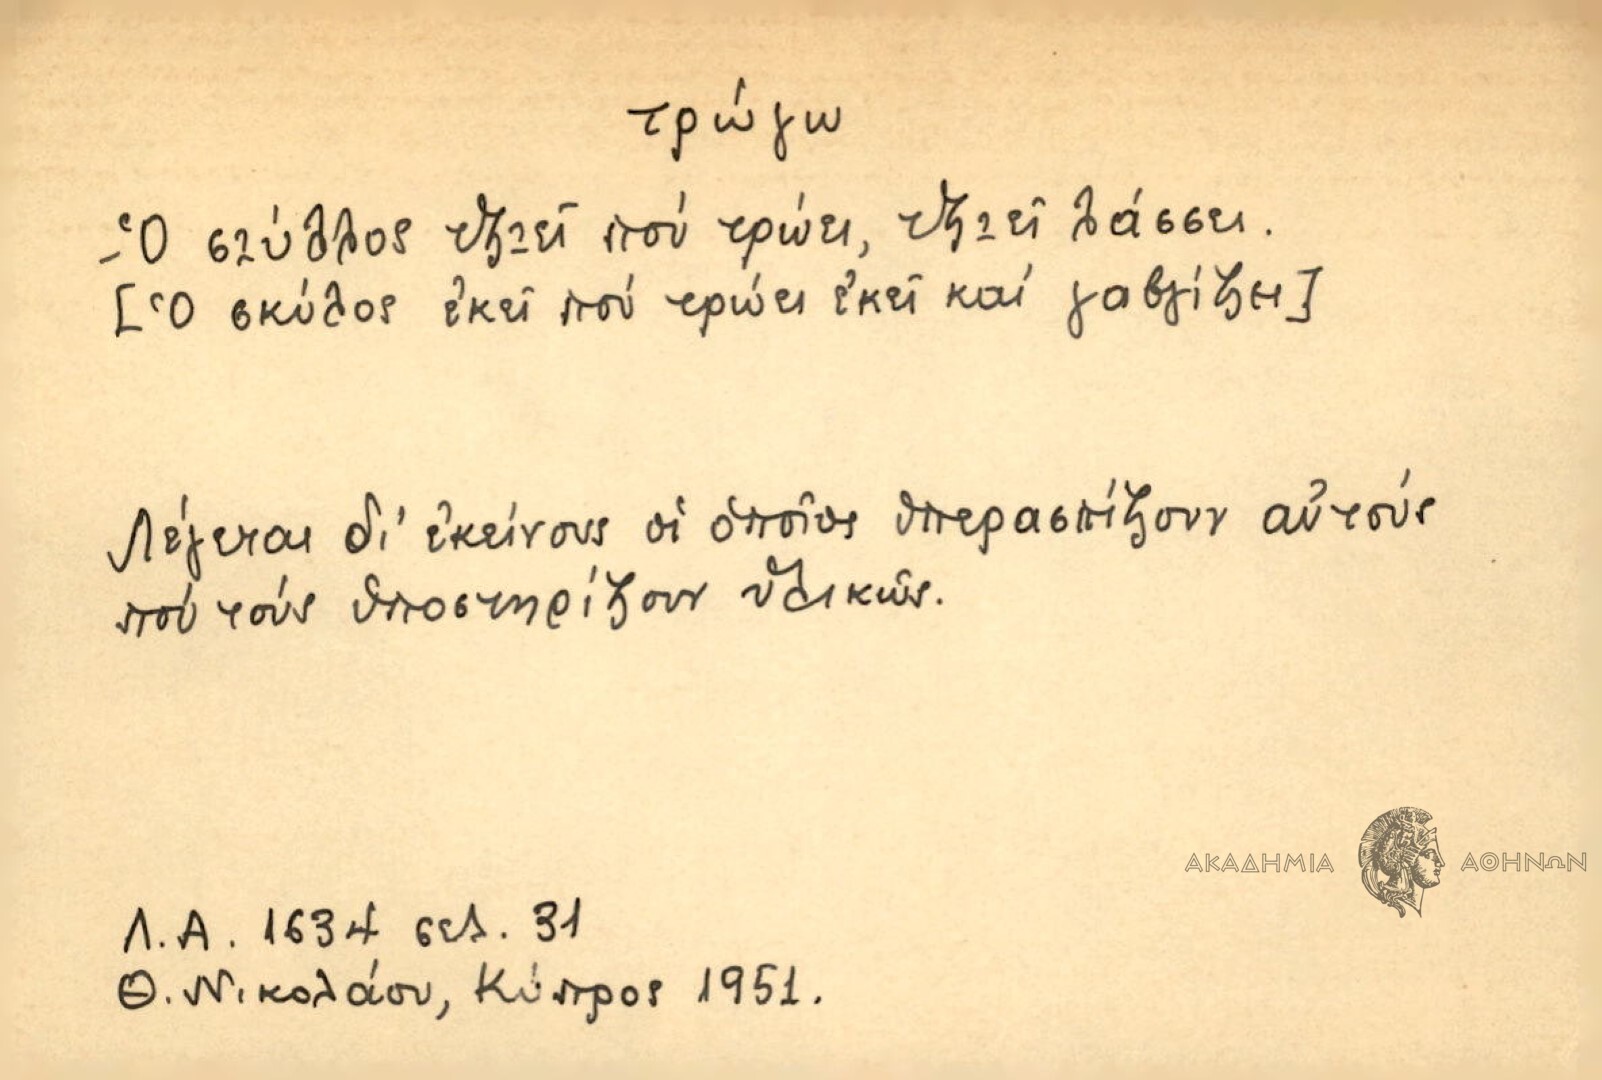 τρώγω
-Ὁ σιύλλος τζιεῖ πού τρώει, τζιεῖ λάσσει.
[Ὁ σκύλος ἐκεῖ πού τρώει ἐκεῖ καί γαβγίζει]
Λέγεται δι' ἐκείνους οἱ ὁποῖοι ὑπερασπίζουν αὐτούς
πού τούς ὑποστηρίζουν ὑλικῶς.
ΑΚΑΔΗΜΙΑ ΑΘΗΝΩΝ
Λ.Α. 1634 σελ. 31
Θ. Νικολάου, Κύπρος 1951.